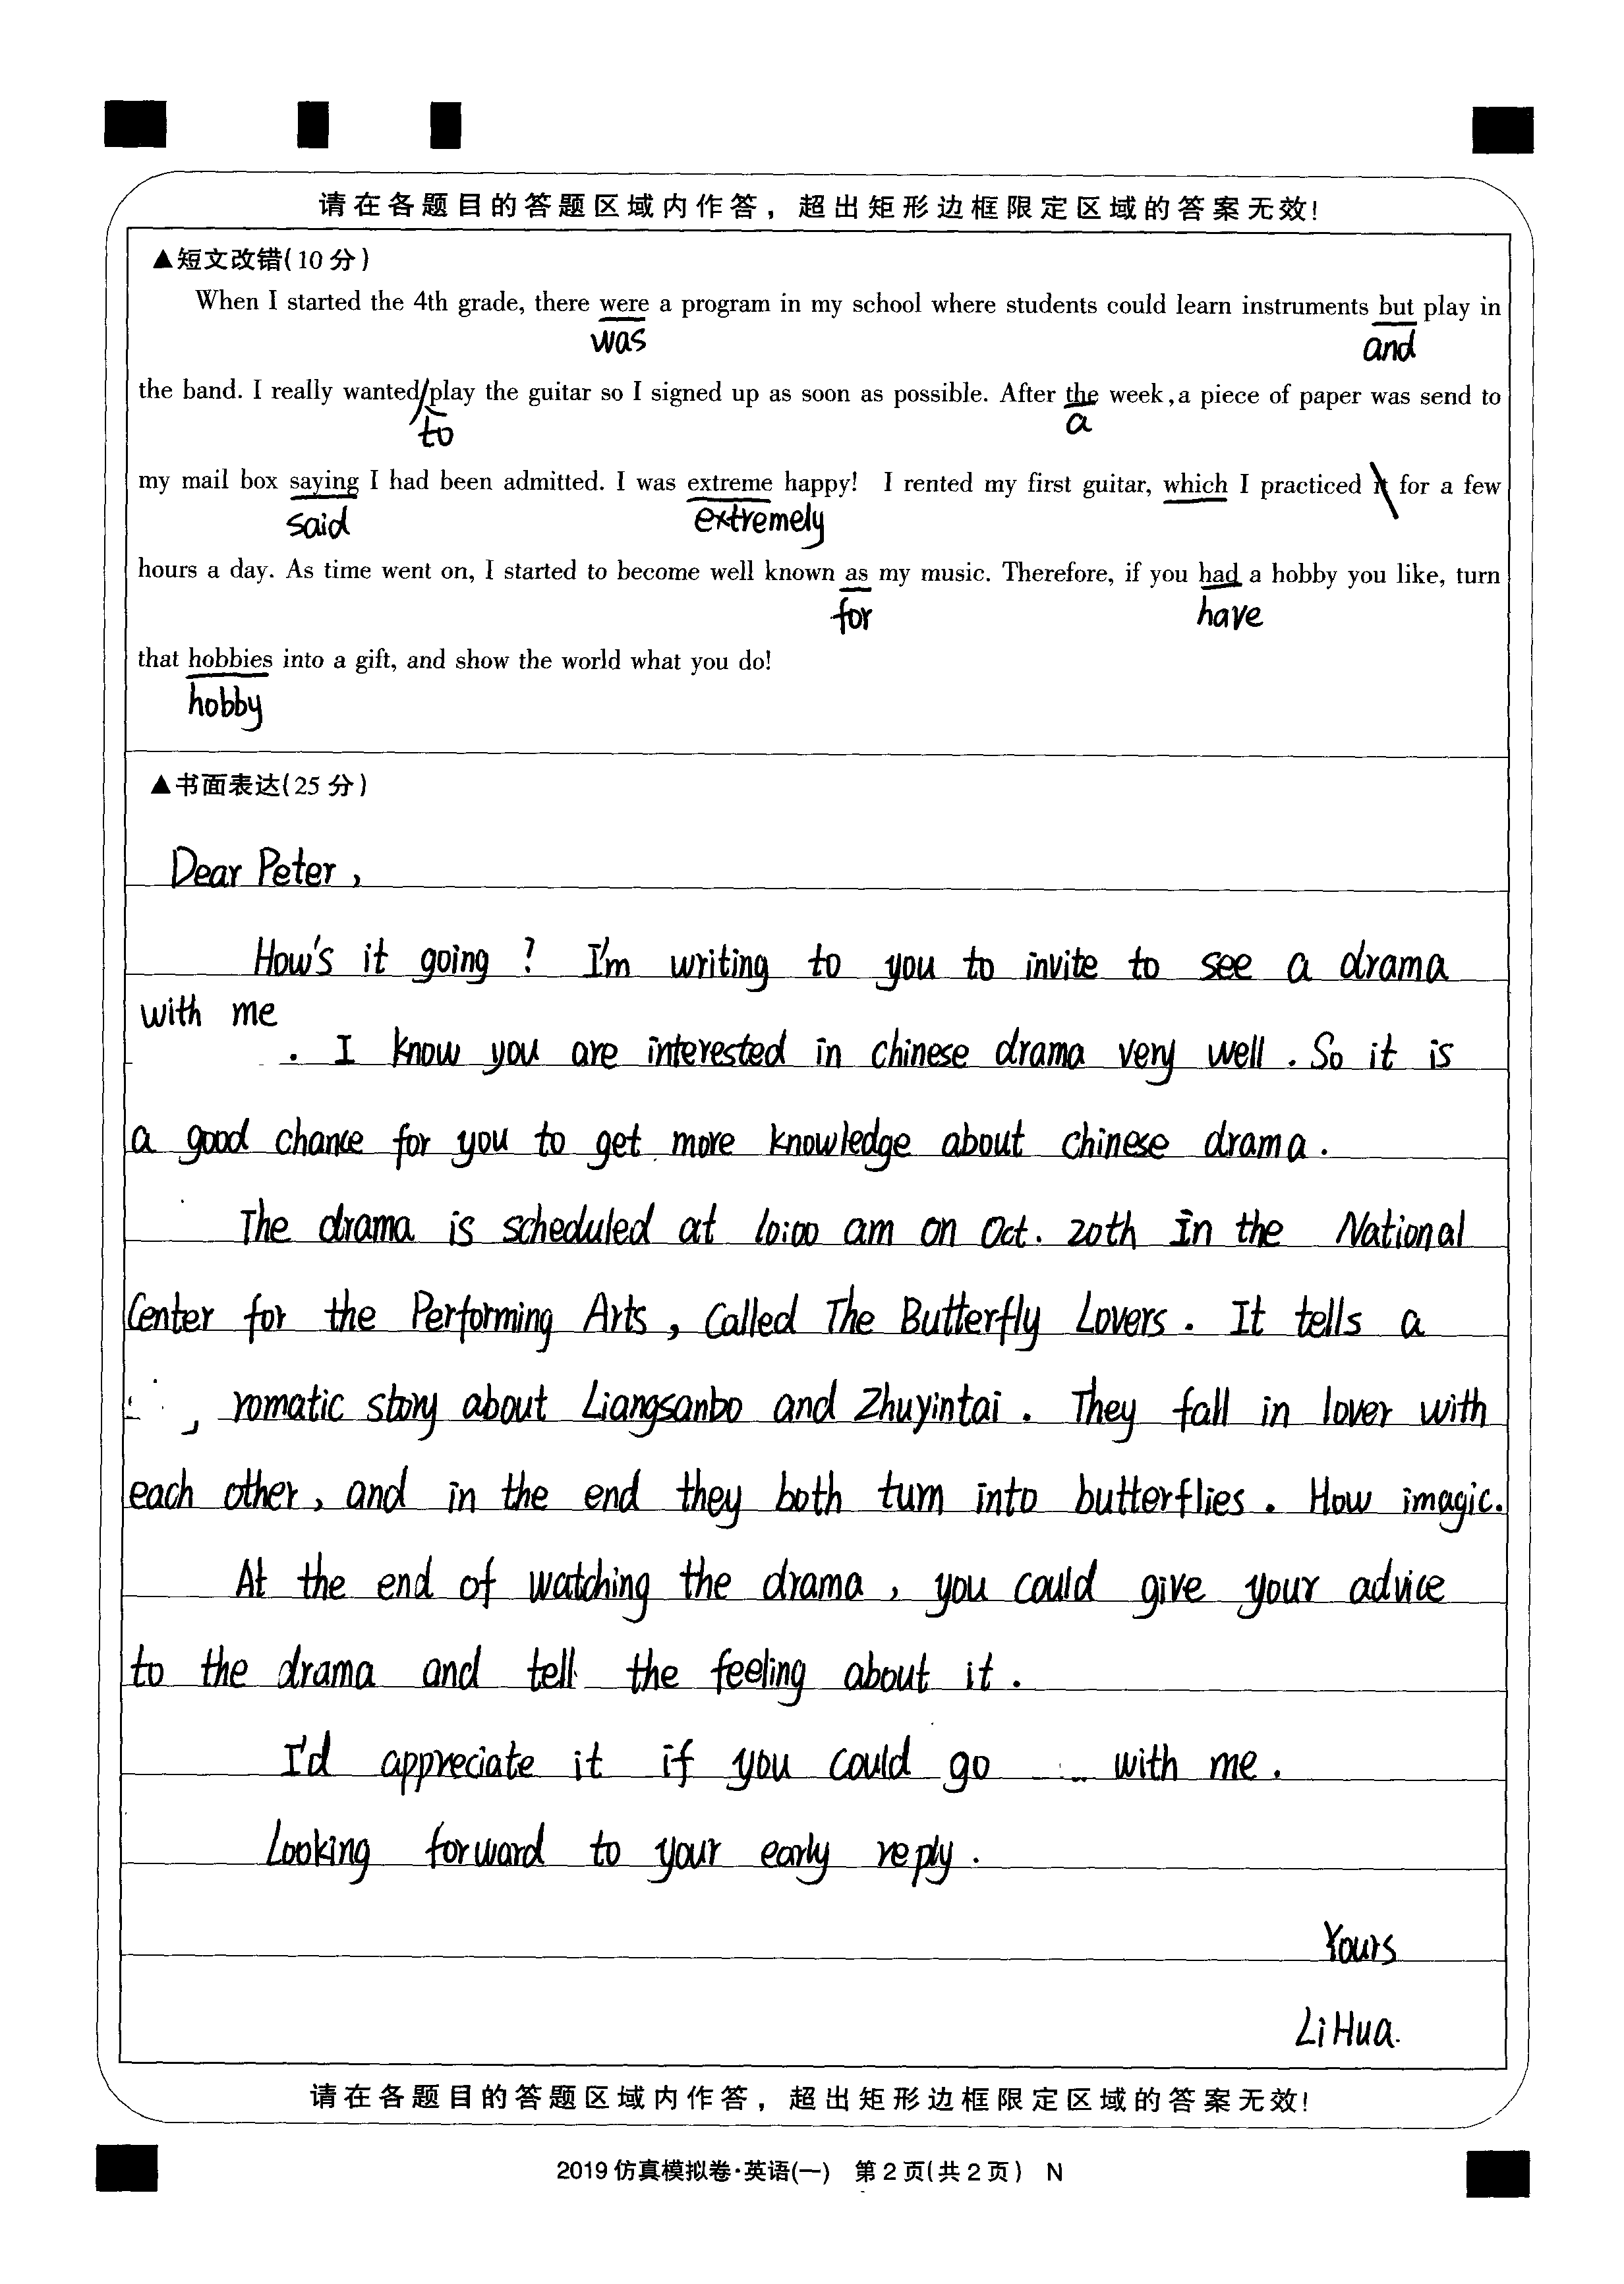 请在各题目的答题区域内作答，超出矩形边框限定区域的答案无效!
▲短文改错(10分)
When I started the 4th grade, there were a program in my school where students could learn instruments but play in
was
and
the band. I really wanted play the guitar so I signed up as soon as possible. After the week,a piece of paper was send to
to
a
my mail box saying I had been admitted. I was extreme happy! I rented my first guitar, which I practiced it for a few
said
extremely
hours a day. As time went on, I started to become well known as my music. Therefore, if you had a hobby you like, turn
for
have
that hobbies into a gift, and show the world what you do!
hobby
▲书面表达(25分)
Dear Peter,
How's it going? I'm writing to you to invite to see a drama
with me
. I know you are interested in chinese drama very well. So it is
a good chance for you to get more knowledge about chinese drama.
The drama is scheduled at 10:00 am on Oct. 20th In the National
Center for the Performing Arts, Called The Butterfly Lovers. It tells a
romatic story about Liangsanbo and Zhuyintai. They fall in lover with
each other, and in the end they both turn into butterflies. How imagic.
At the end of watching the drama, you could give your advice
to the drama and tell the feeling about it.
I'd appreciate it if you could go with me.
Looking forward to your early reply.
Yours
Li Hua.
请在各题目的答题区域内作答，超出矩形边框限定区域的答案无效!
2019仿真模拟卷·英语(一) 第2页(共2页) N